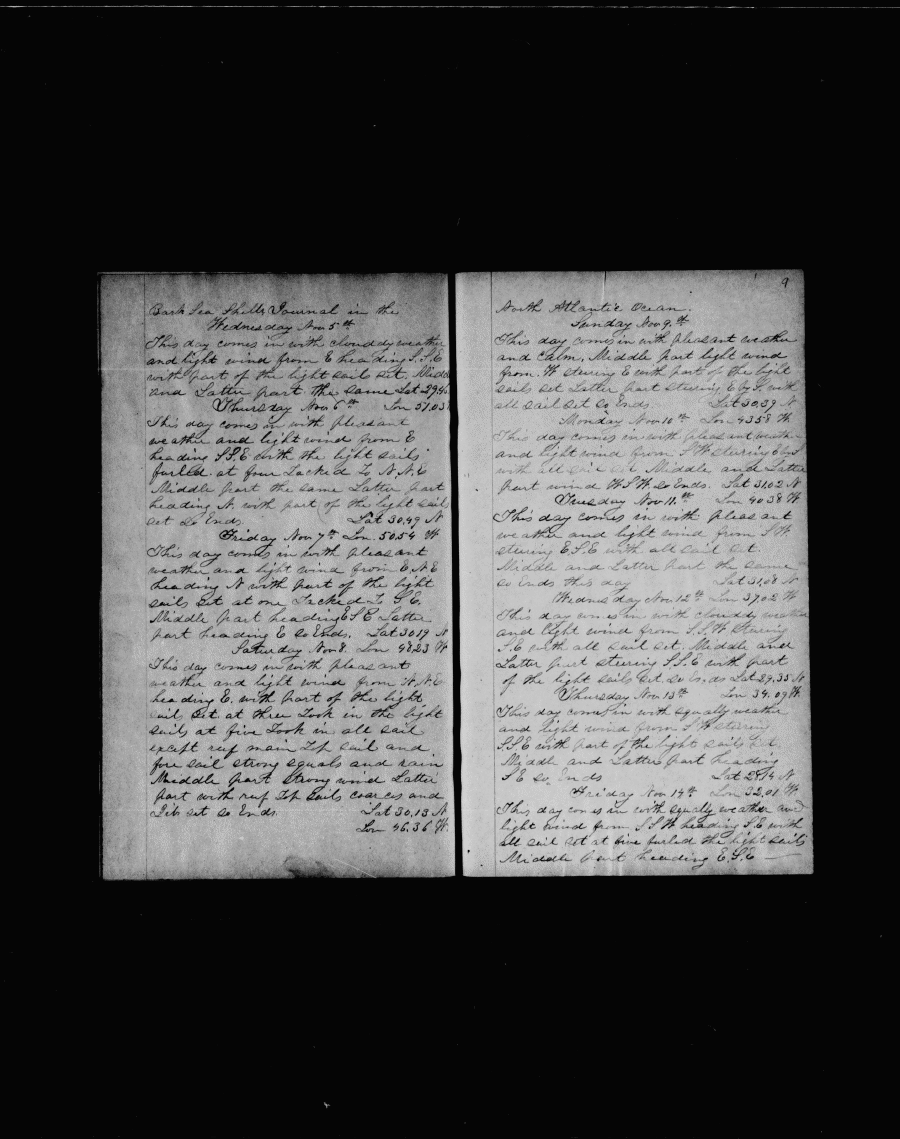 Bark Sea Shells Journal in the
Wednesday Nov 5th
This day comes in with clouddy weather
and light wind from E heading S.S.E
with part of the light sails set. Middle
and Latter part the same Lat 29,46
Thursday Nov 6th Lon 51,03
This day comes in with pleasant
weather and light wind from E
heading S.S.E with the light sails
furled. at four Tacked To N.N.E
Middle part the same Latter part
heading N. with part of the light sails
set So Ends. Lat 30,49 N
Friday Nov 7th Lon. 50,54 W
This day comes in with pleasant
weather and light wind from E.N.E
heading N with part of the light
sails set at one Tacked To S.E.
Middle part heading E S E Latter
part heading E So Ends. Lat 30 19 N
Saturday Nov 8. Lon 48,23 W
This day comes in with pleasant
weather and light wind from N.N.E
heading E. with part of the light
sail set at three Took in the light
sails at five Took in all sail
except reef main Top sail and
fore sail strong squals and rain
Middle part strong wind Latter
part with reef Top sails coarces and
Jib set So Ends. Lat 30,13 N
Lon 46,36 W.
9
North Atlantic Ocean.
Sunday Nov 9.th
This day comes in with pleasant weather
and calm. Middle part light wind
from. W stering E with part of the light
sails set Latter part stering E by S with
all sail set So Ends Lat 30,39 N
Monday Nov 10th Lon 43 58 W
This day comes in with pleasant weather
and light wind from S W stering E by S
with all sail set Middle and Latter
part wind W S W. So Ends. Lat 31,02 N
Tuesday Nov 11.th Lon 40 38 W
This day comes in with pleasant
weather and light wind from S W.
stering E S E with all sail set.
Middle and Latter part the same
So Ends this day Lat 31,08 N
Wednesday Nov 12th Lon 37,02 W
This day comes in with clouddy weather
and light wind from S.S.W stering
S.E with all sail set. Middle and
Latter part steering S.S.E with part
of the light sails set. So Ends Lat 29,35 N
Thursday Nov 13th Lon 34.09 W
This day comes in with squally weather
and light wind from S W stering
S.S.E with part of the light sails set.
Middle and Latter part heading
S E So Ends Lat 28 14 N
Friday Nov 14th Lon 32,01 W
This day comes in with squally weather and
light wind from S S W heading S.E with
all sail set at five furled the light sails
Middle part heading E.S.E